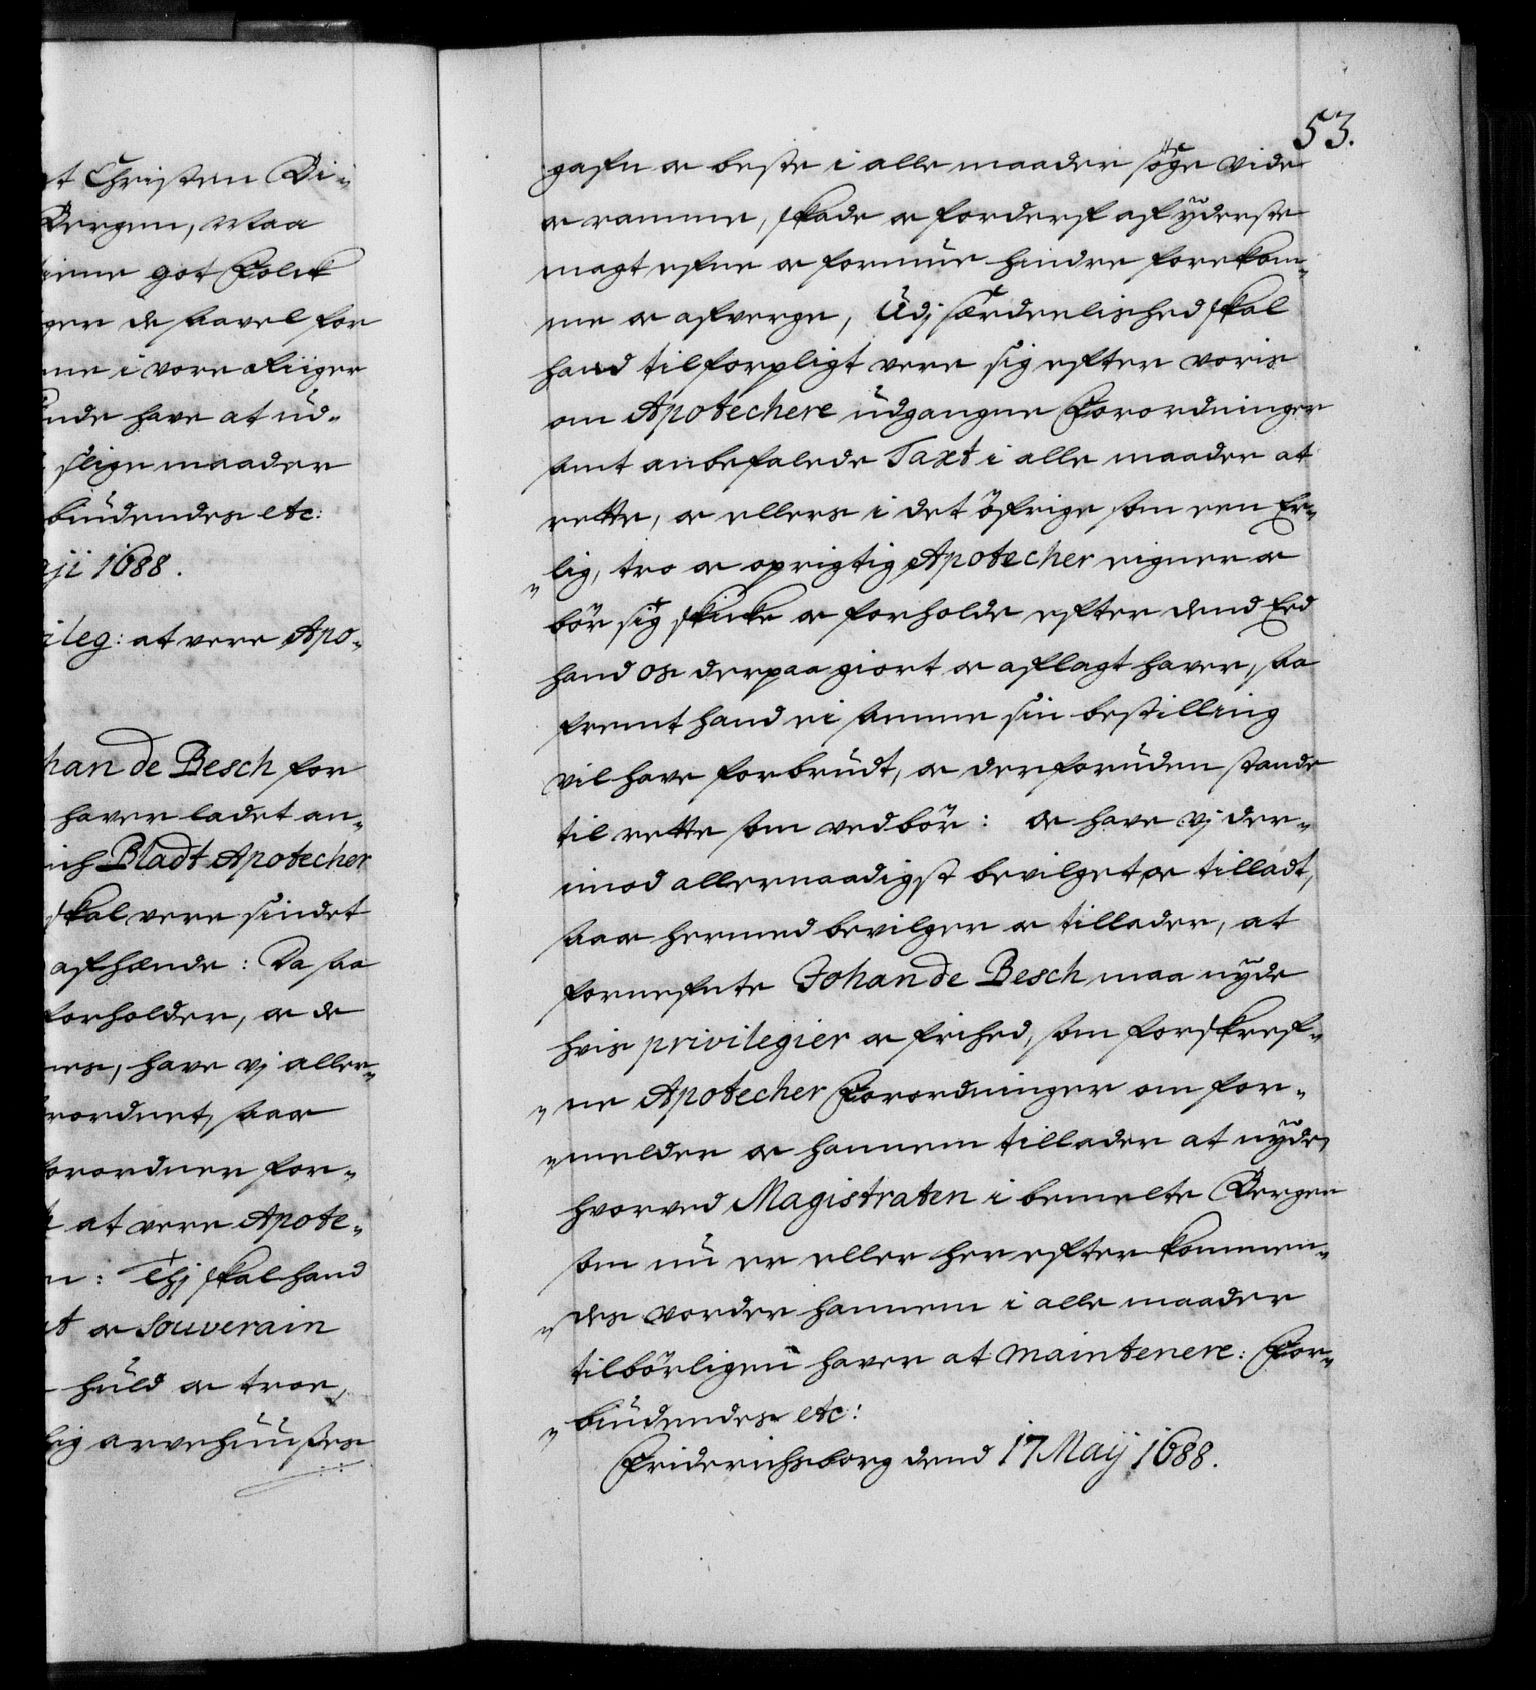 t Christen Di-
Bergen, Maa
tiene got Folck
ger de saavel for
me i vore Riiger
inde have at ud-
slige maader
bindendes etc:
aji 1688.
ileg: at vere Apo-
han de Besch for
haver ladet an-
ich Bladt Apotecher
skal vere sindet
afhænde: Da saa
forholder, oc de
nes, have vj aller-
rordnet, saa
forordner for-
at vere Apote-
n: Thj skal hand
t oc Souverain
huld oc troe,
lig arvehuusses
53.
gafn oc beste i alle maader söge vide
oc ramme, skade oc forderf af yderste
magt efne oc formue hindre forekom-
me oc afverge, Udj særdeelished skal
hand tilforpligt vere sig efter voris
om Apotechere udgangne Forordninger
samt anbefalede Taxt i alle maader at
rette, oc ellers i det öfrige som een Er-
lig, tro oc oprigtig Apotecher eigner oc
bör sig skicke oc forholde efter dend Eed
hand os derpaa giort oc aflagt haver, saa
fremt hand ei samme sin bestilling
vil have forbrudt, oc derforuden stande
til rette som vedbör: oc have vj der-
imod allernaadigst bevilget oc tilladt,
saa oc hermed bevilger oc tillader, at
fornefnte Johan de Besch maa nyde
hvis privilegier oc frihed, som forskref-
ne Apotecher Forordninger om for-
melder oc hannem tillader at nyde,
hvorved Magistraten i bemelte Bergen
som nu er eller herefter kommen-
des vorder hannem i alle maader
tilbörligen haver at maintenere: For-
bindendes etc:
Friderichsborg dend 17 Maij 1688.